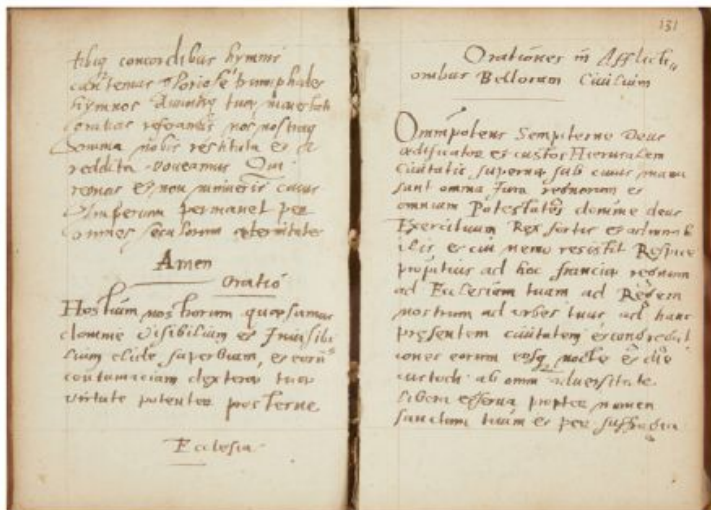 tibiq concordibus hymnis
cantemus gloriosé triumphales
hymnos Divinęq tuę maiestati
gratias referamus nos nostraq
omnia nobis restituta et
reddita voveamus Qui
regnas et non cuius
Imperium permanet per
omnes seculorum æternitates
Amen
Oratiō
Hostium nostrorum quęsumus
domine Visibilium et Invisibi
lium elide superbiam, et eorū
contumaciam dexterę tuę
virtute potenter prosterne
Ecclesia
131
Orationes in Afflicti„
onibus Bellorum Civilium
Omnipotens Sempiterne Deus
ædificator et custos Hierusalem
Civitatis supernę sub cuius manu
sunt omnia Jura regnorum et
omnium Potestatū domine deus
Exercituum Rex fortis et admirab
ilis et cui nemo resistit Respice
propitius ad hoc francię regnum
ad Ecclesiam tuam ad Regem
nostrum ad urbes tuas ad hanc
presentem civitatem et congregati
ones eorum eosq nocte et die
custodi ab omni adversitate
libera propter nomen
sanctum tuum et per suffragia